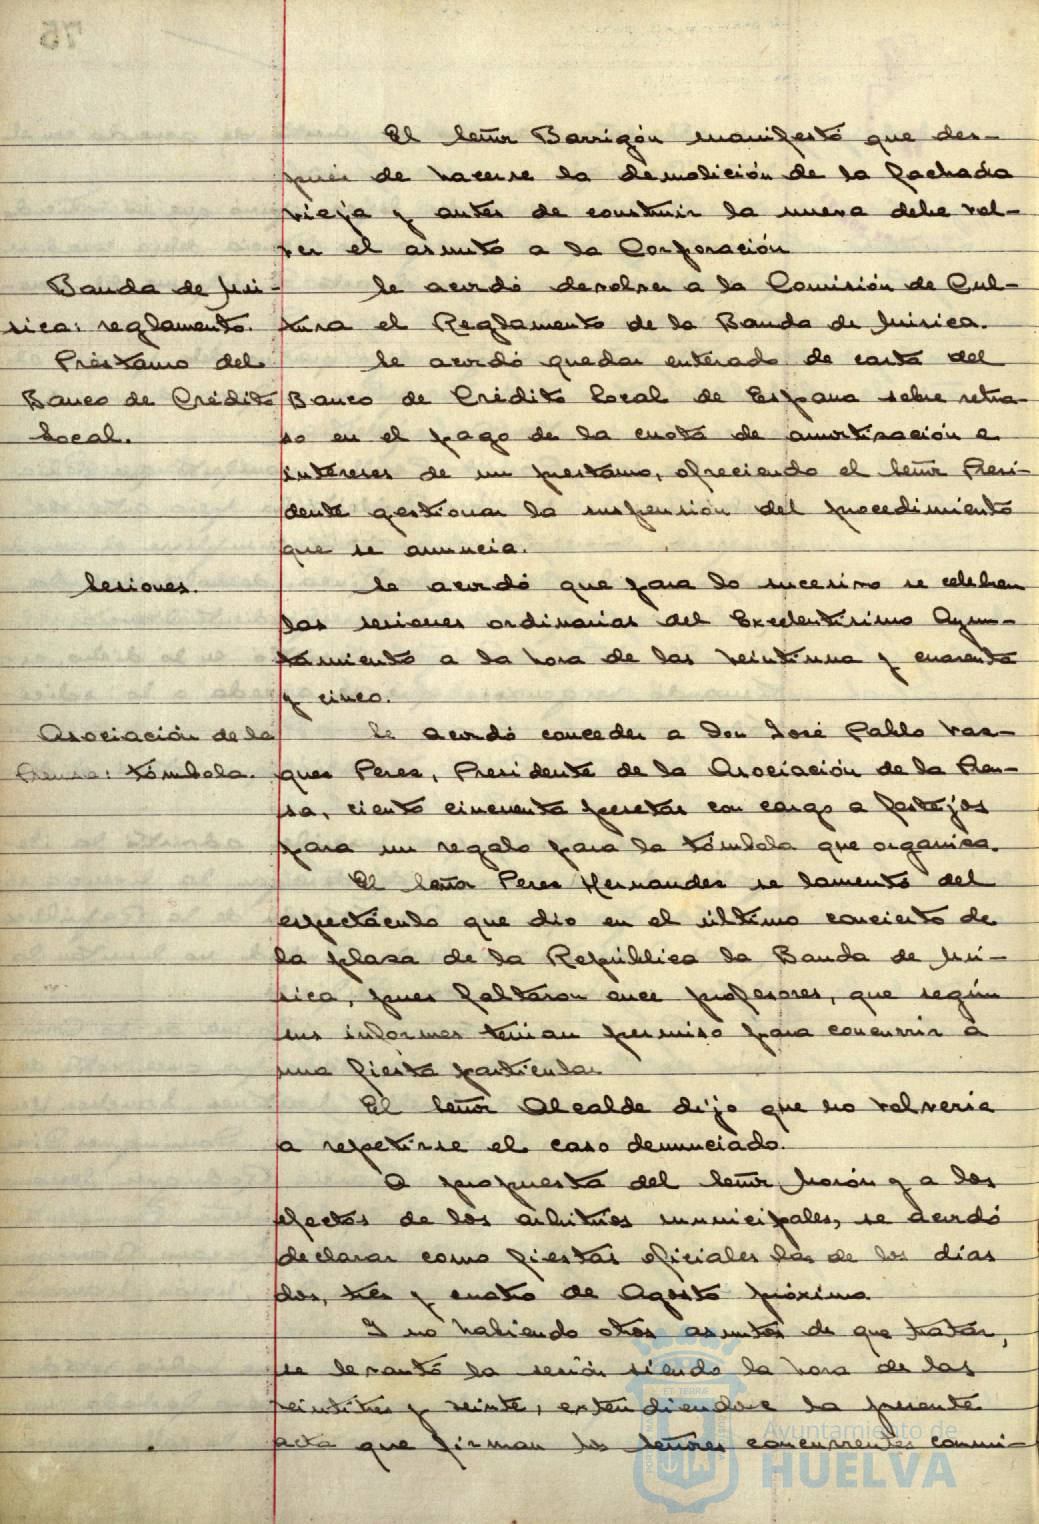 El Señor Barrigón manifestó que des-
pués de hacerse la demolición de la fachada
vieja y antes de construir la nueva debe vol-
ver el asunto a la Corporación
Banda de Mú-
sica: reglamento.
Se acordó devolver a la Comisión de Cul-
tura el Reglamento de la Banda de Música.
Préstamo del
Banco de Crédito
Local.
Se acordó quedar enterado de carta del
Banco de Crédito Local de España sobre retra-
so en el pago de la cuota de amortización e
intereses de un prestamo, ofreciendo el Señor Presi-
dente gestionar la suspensión del procedimiento
que se anuncia.
Sesiones.
Se acordó que para lo sucesivo se celebren
las sesiones ordinarias del Excelentísimo Ayun-
tamiento a la hora de las veintiuna y cuarenta
y cinco.
Asociación de la
Prensa: tómbola.
Se acordó conceder a Don José Pablo Vaz-
quez Perez, Presidente de la Asociación de la Pren-
sa, ciento cincuenta pesetas con cargo a festejos
para un regalo para la tómbola que organiza.
El Señor Perez Hernandez se lamentó del
espectáculo que dio en el último concierto de
la plaza de la República la Banda de Mú-
sica, pues faltaron once profesores, que según
sus informes tenian permiso para concurrir a
una fiesta particular
El Señor Alcalde dijo que no volveria
a repetirse el caso denunciado.
A propuesta del Señor Morón y a los
efectos de los arbitrios municipales, se acordó
declarar como fiestas oficiales las de los días
dos, tres y cuatro de Agosto próximo
Y no habiendo otros asuntos de que tratar,
se levantó la sesión siendo la hora de las
veintitres y veinte, extendiendose la presente
acta que firman los Señores concurrentes conmi-
Ayuntamiento de
HUELVA